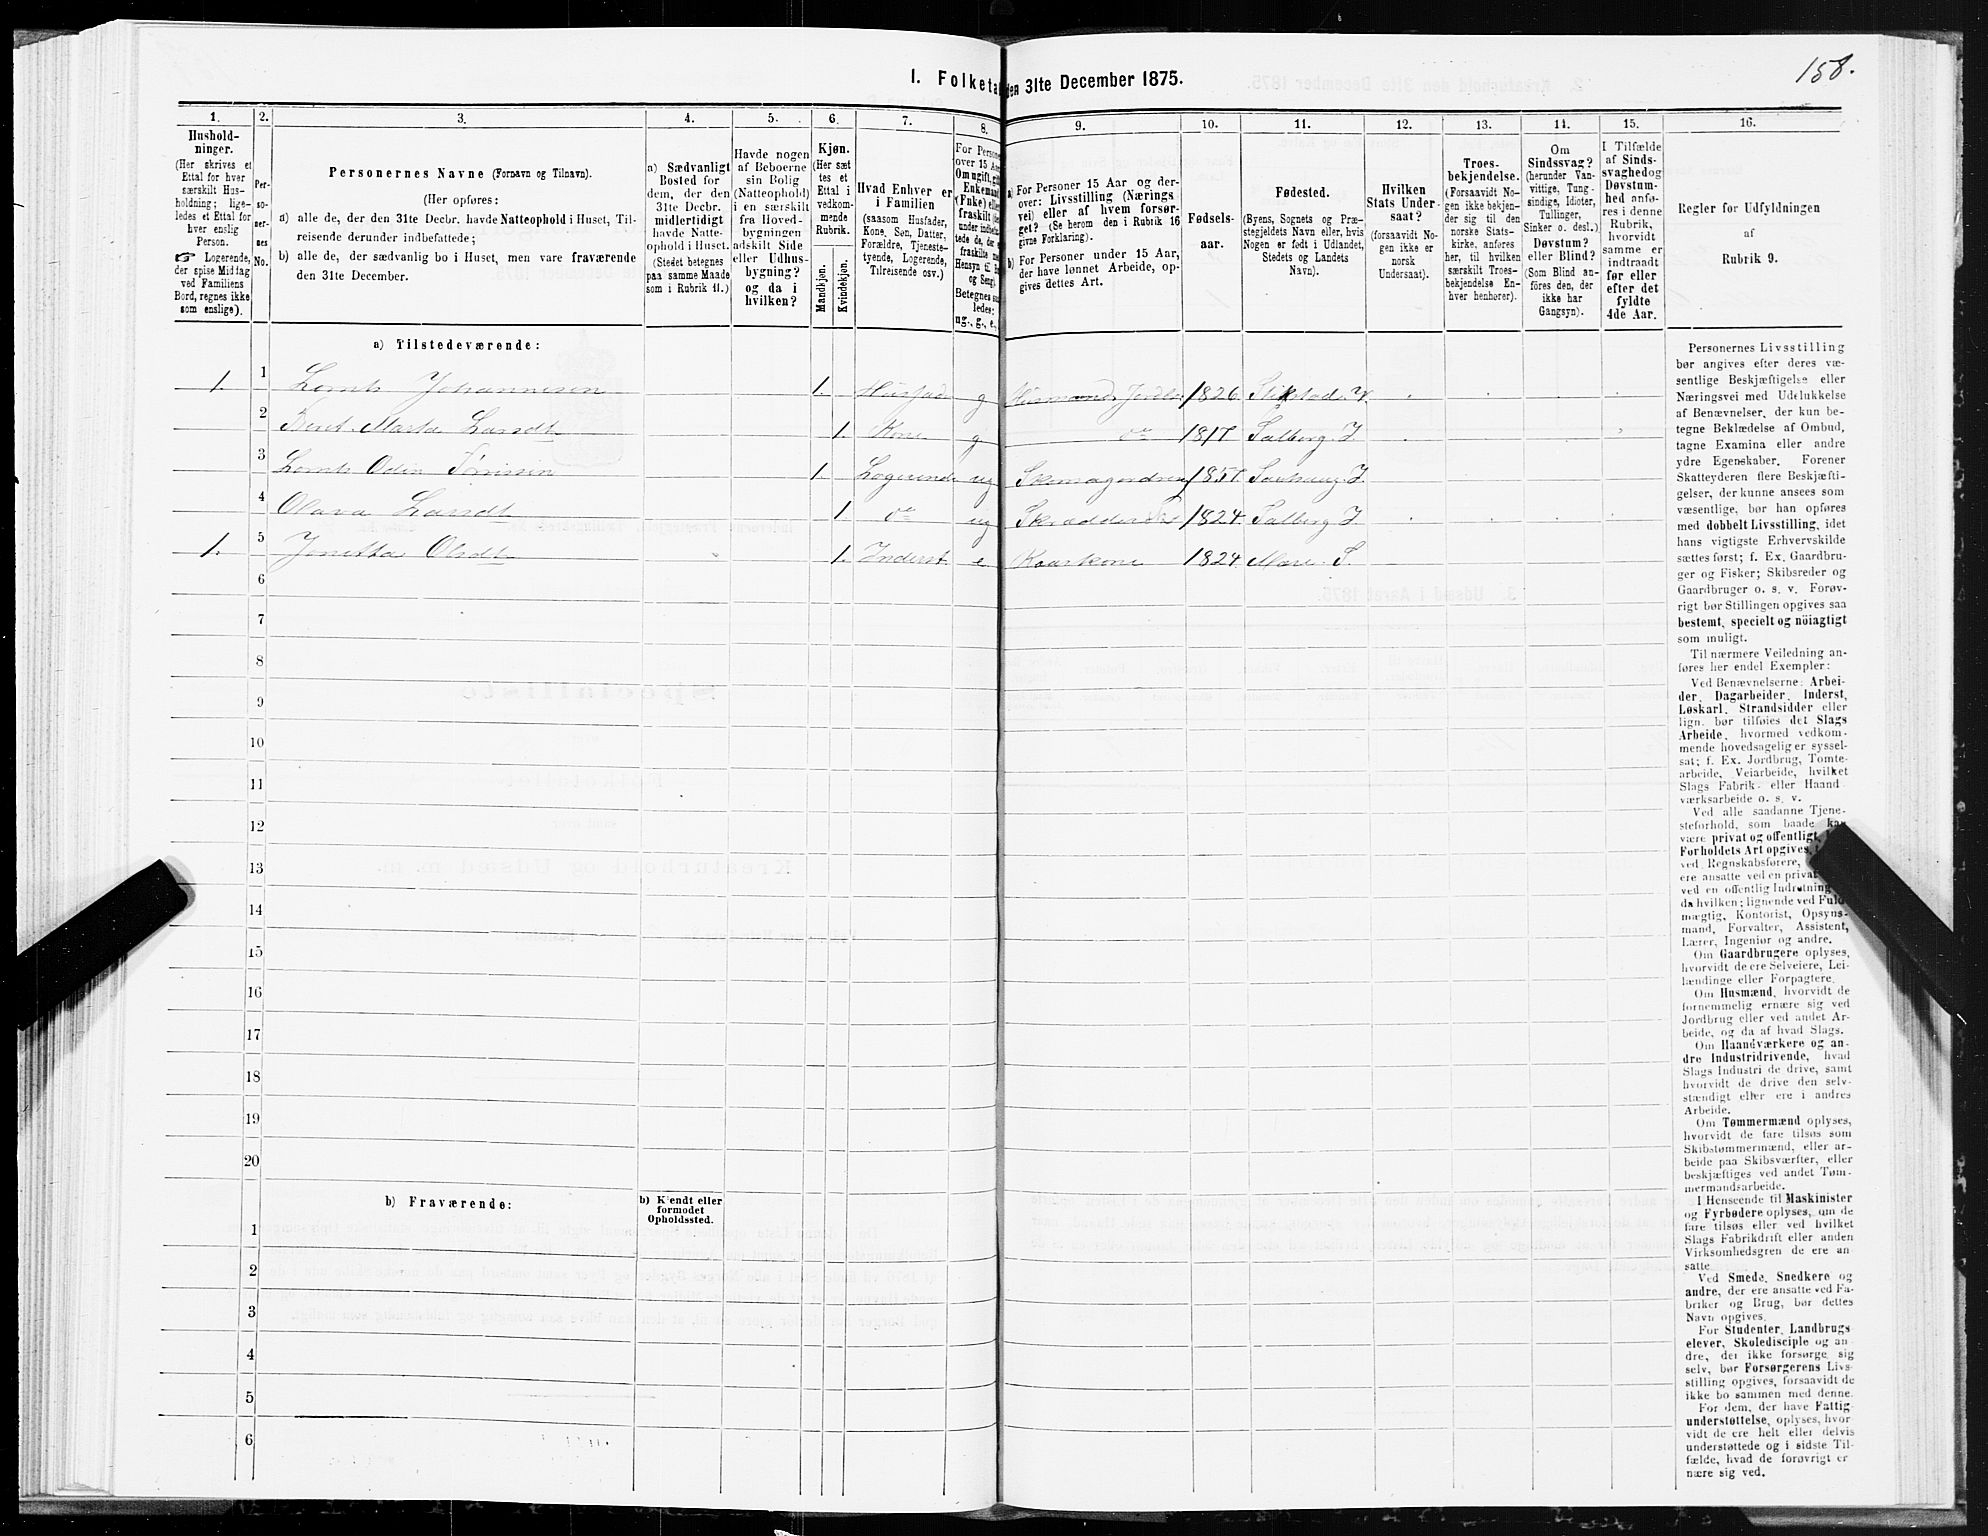 158.
1. Folketa den 31te December 1875.
1. 2. 3. 4. 5. 6. 7. 8. 9. 10. 11. 12. 13. 14. 15. 16.
Hushold-
ninger.
(Her skrives et
Ettal for hver
særskilt Hus-
holdning; lige-
ledes et Ettal for
hver enslig
Person.
☞ Logerende,
der spise Middag
ved Familiens
Bord, regnes ikke
som enslige).
Per-
so-
ner-
nes
No.
Personernes Navne (Fornavn og Tilnavn).
(Her opføres:
a) alle de, der den 31te Decbr. havde Natteophold i Huset, Til-
reisende derunder indbefattede;
b) alle de, der sædvanlig bo i Huset, men vare fraværende
den 31te December.
a) Sædvanligt
Bosted for
dem, der den
31te Decbr.
midlertidigt
havde Natte-
ophold i Huset.
(Stedet betegnes
paa samme Maade
som i Rubrik 11.)
Havde nogen
af Beboerne
sin Bolig
(Natteophold)
i en særskilt
fra Hoved-
bygningen
adskilt Side
eller Udhus-
bygning?
og da i
hvilken?
Kjøn.
(Her sæt
tes et
Ettal i
vedkom-
mende
Rubrik.
Mandkjøn.
Kvindekjøn.
Hvad Enhver er
i Familien
(saasom Husfader,
Kone, Søn, Datter,
Forældre, Tjeneste-
tyende, Logerende,
Tilreisende osv.)
For Persone
over 15 Aa
Om ugift, gif
Enkemand
(Enke) elle
fraskilt
Betegnes sa
ledes:
ug., g., e.,
a) For Personer 15 Aar og der-
over: Livsstilling (Nærings
vei) eller af hvem forsør-
get? (Se herom den i Rubrik 16
givne Forklaring).
b) For Personer under 15 Aar,
der have lønnet Arbeide, op-
gives dettes Art.
Fødsels-
aar.
Fødested.
(Byens, Sognets og Præ-
stegjeldets Navn eller, hvis
Nogen er født i Udlandet,
Stedets og Landets
Navn).
Hvilken
Stats Under-
saat?
(forsaavidt No-
gen ikke er
norsk
Undersaat).
Troes-
bekjendelse.
(Forsaavidt No-
gen ikke bekjen-
der sig til den
norske Stats-
kirke, anføres
her, til hvilken
særskilt Troes-
bekjendelse En-
hver henhører).
Om
Sindssvag?
(herunder Van-
vittige, Tung-
sindige, Idioter,
Tullinger,
Sinker o. desl.)
Døvstum?
eller Blind?
(Som Blind an-
føres den, der
ikke har
Gangsyn).
I Tilfælde
af Sinds-
svaghed og
Døvstum-
hed anfø-
res i denne
Rubrik,
hvorvidt
samme er
indtraadt
før eller
efter det
fyldte
4de Aar.
Regler for Udfyldningen
af
Rubrik 9.
a) Tilstedeværende:
1. 1 Johannesen 1. g 1826
2 Marta Larsdt 1. Kone g do 1817 Salberg I
3 Odin 1. Logerende ug 1857
4 Olava Larsdt 1 do ug 1824 Salberg I
1. 5 Jonetta Olsdt 1. Inderst e Kaarkone 1824 Mære S.
6
7
8
9
10
11
12
13
14
15
16
17
18
19
20
b) Fraværende:
b) Kjendt eller
formodet
Opholdssted.
1
2
3
4
5
6
Personernes Livsstilling
bør angives efter deres væ-
sentlige Beskjæftigelse eller
Næringsvei med Udelukkelse
af Benævnelser, der kun be-
tegne Beklædelse af Ombud,
tagne Examina eller andre
ydre Egenskaber. Forener
Skatteyderen flere Beskjæfti-
gelser, der kunne ansees som
væsentlige, bør han opføres
med dobbelt Livsstilling, idet
hans vigtigste Erhvervskilde
sættes først; f. Ex. Gaardbru-
ger og Fisker; Skibsreder og
Gaardbruger o. s. v. Forøv-
rigt bør Stillingen opgives saa
bestemt, specielt og nöiagtigt
som muligt.
Til nærmere Veiledning an-
føres her endel Exempler:
Ved Benævnelserne: Arbei-
der, Dagarbeider, Inderst,
Løskarl, Strandsidder eller
lign. bør tilføies det Slags
Arbeide, hvormed vedkom-
mende hovedsagelig er syssel-
sat; f. Ex. Jordbrug, Tomte-
arbeide, Veiarbeide, hvilket
Slags Fabrik- eller Haand
værksarbeide o. s. v.
Ved alle saadanne Tjene-
steforhold, som baade ka
være privat og offentligt,
Forholdets Art opgives,
ved Regnskabsførere,
ere ansatte ved en privat
ved en offentlig Indretning
da hvilken; lignende ved Fuld
mægtig, Kontorist, Opsyns-
mand, Forvalter, Assistent,
Lærer, Ingeniør og andre.
Om Gaardbrugere oplyses,
hvorvidt de ere Selveiere, Lei-
lændinge eller Forpagtere.
Om Husmænd, hvorvidt de
fornemmelig ernære sig ved
Jordbrug eller ved andet Ar-
beide, og da af hvad Slags.
Om Haandværkere og an-
dre Industridrivende, hvad
Slags Industri de drive, samt
hvorvidt de drive den selv-
stændigt eller ere i andres
Arbeide.
Om Tømmermænd oplyses,
hvorvidt de fare tilsøs som
Skibstømmermænd, eller ar-
beide paa Skibsværfter, eller
beskjæftiges ved andet Tøm-
mermandsarbeide.
I Henseende til Maskinister
og Fyrbødere oplyses, om de
fare tilsøs eller ved hvilket
Slags Fabrikdrift eller anden
Virksomhedsgren de ere an-
satte.
Ved Smede, Snedkere og
andre, der ere ansatte ved Fa-
briker og Brug, bør dettes
Navn opgives.
For Studenter, Landbrugs
elever, Skoledisciple og an-
dre, der ikke forsørge sig
selv, bør Forsørgerens Livs-
stilling opgives, forsaavidt de
ikke bo sammen med denne.
For dem, der have Fattig-
understøttelse, oplyses, hvor
vidt de ere helt eller delvis
understøttede og i sidste Til-
fælde, hvad de forøvrigt er
nære sig ved.